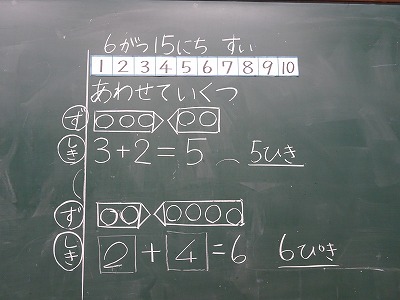 6がつ15にち すい
1 2 3 4 5 6 7 8 9 10
あわせていくつ
ず
しき 3+2=5 5ひき
ず
しき 2+4=6 6ぴき